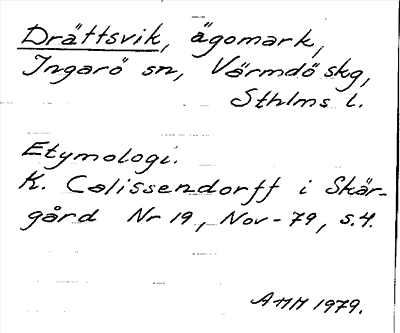 Drättsvik, ägomark,
Ingarö sn, Värmdö skg,
Sthlms l.
Etymologi.
K. Calissendorff i Skär-
gård Nr 19, Nov-79, s.4.
AMM 1979.